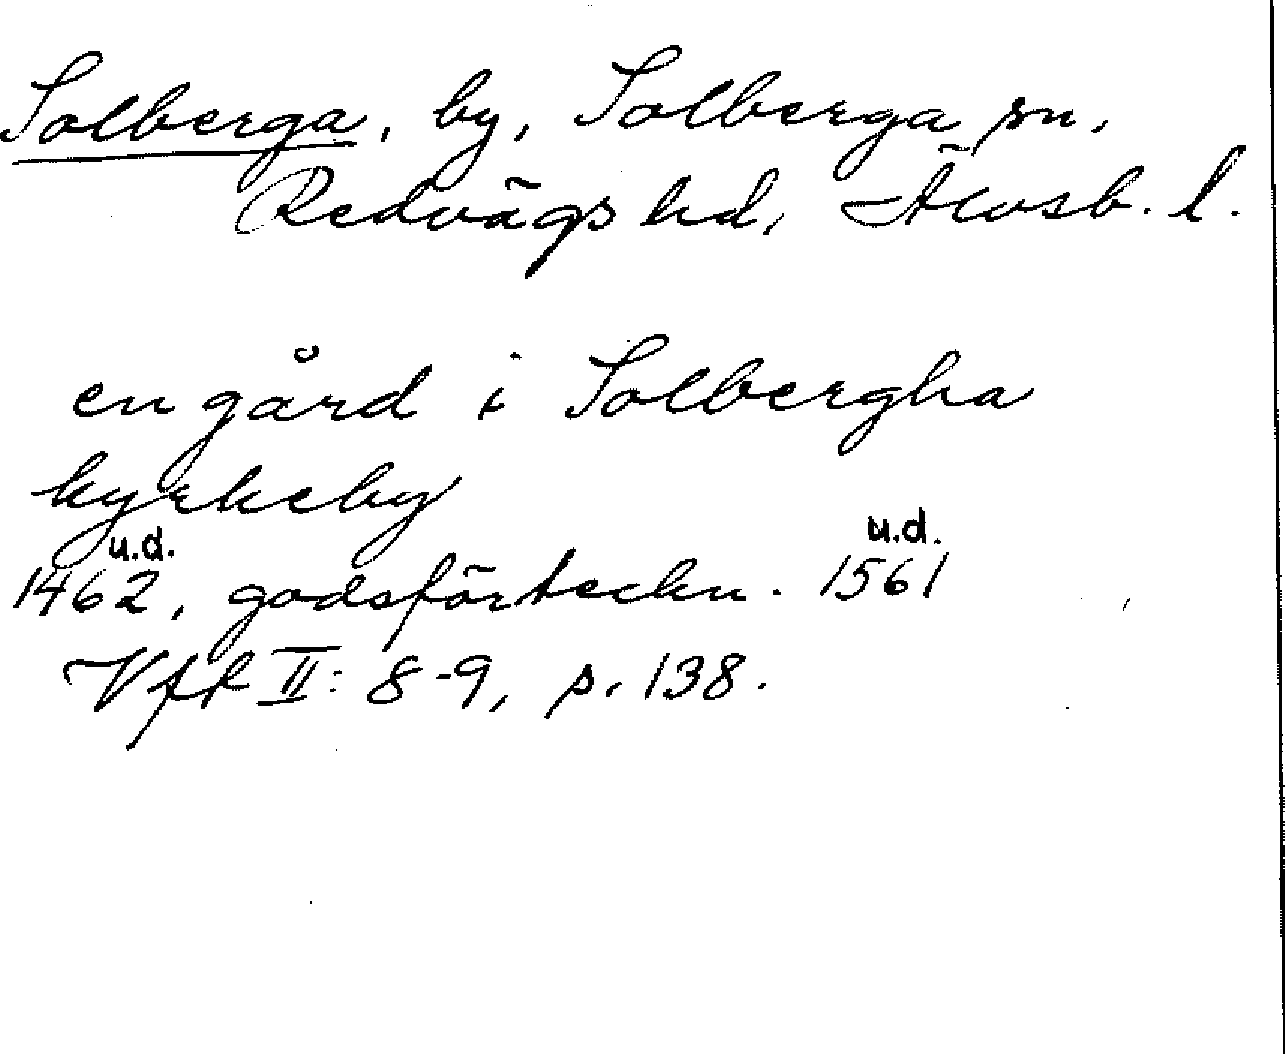 Solberga, by, Solberga sn,
Redvägs hd, Älvsb. l.
en gård i Solbergha
kyrkeby
u.d. u.d.
1462, godsförteckn. 1561
Vff II: 8-9, p. 138.